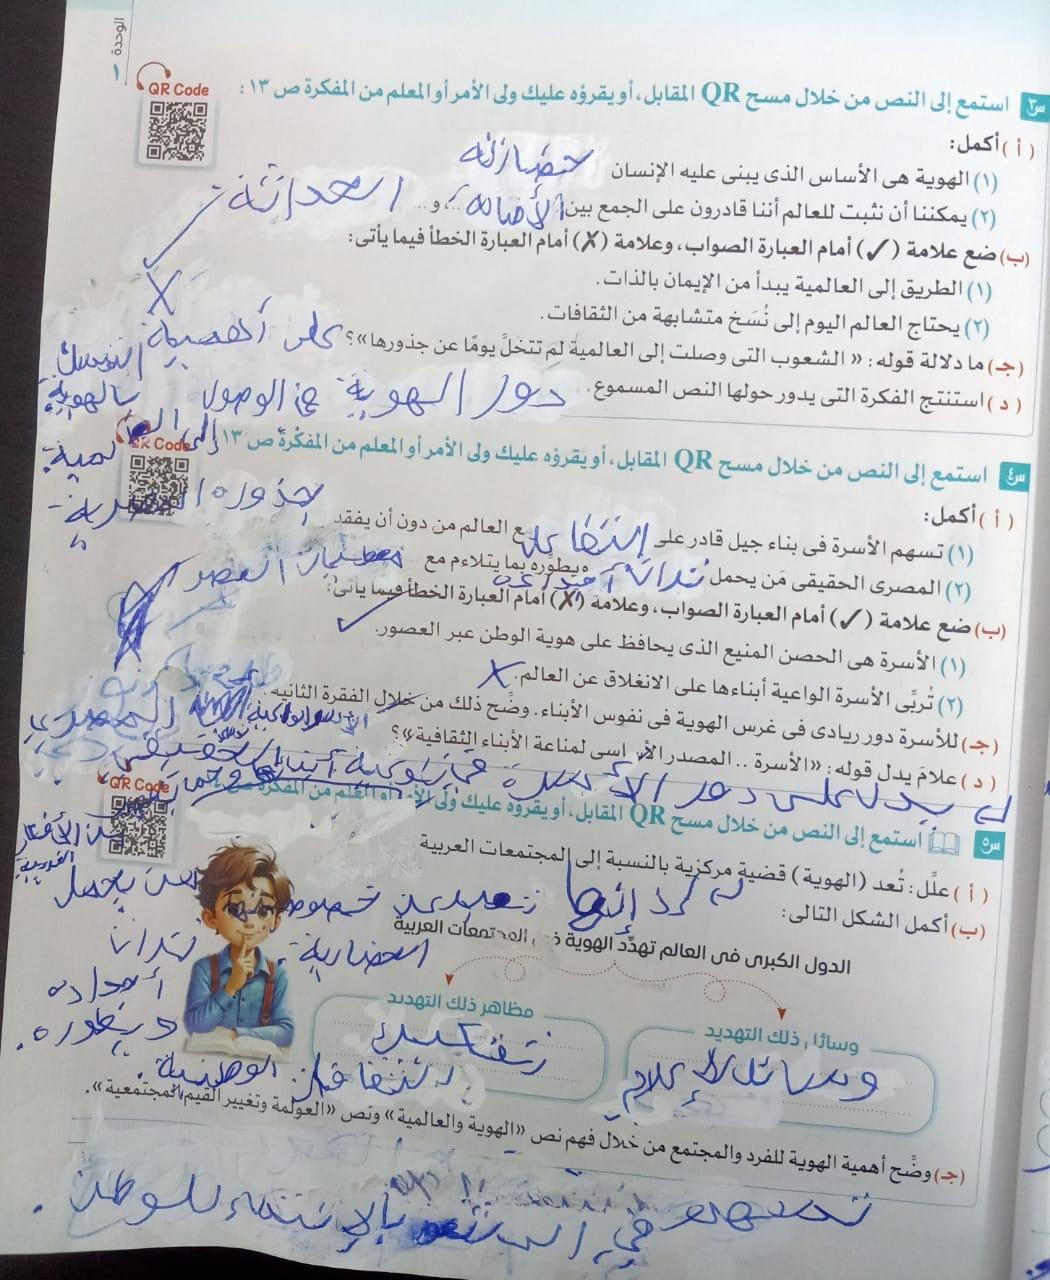 الوحدة ١
QR Code
س٣ استمع إلى النص من خلال مسح QR المقابل، أو يقرؤه عليك ولى الأمر أو المعلم من المفكرة ص ١٣ :
(أ) أكمل:
(١) الهوية هى الأساس الذى يبنى عليه الإنسان حضارته
(٢) يمكننا أن نثبت للعالم أننا قادرون على الجمع بين الأصالة، و... الحداثة
(ب) ضع علامة (✓) أمام العبارة الصواب، وعلامة (✗) أمام العبارة الخطأ فيما يأتى:
(١) الطريق إلى العالمية يبدأ من الإيمان بالذات. ✓
(٢) يحتاج العالم اليوم إلى نُسَخ متشابهة من الثقافات. X
(جـ) ما دلالة قوله: « الشعوب التى وصلت إلى العالمية لم تتخلَّ يومًا عن جذورها»؟ على أهمية التمسك بالهوية
(د) استنتج الفكرة التى يدور حولها النص المسموع. دور الهوية في الوصول إلى العالمية
QR Code
س٤ استمع إلى النص من خلال مسح QR المقابل، أو يقرؤه عليك ولى الأمر أو المعلم من المفكرة ص ١٣
(أ) أكمل:
(١) تسهم الأسرة فى بناء جيل قادر على التفاعل مع العالم من دون أن يفقد جذوره المصرية
(٢) المصرى الحقيقى مَن يحمل تراث أجداده ويطوره بما يتلاءم مع معطيات العصر
(ب) ضع علامة (✓) أمام العبارة الصواب، وعلامة (✗) أمام العبارة الخطأ فيما يأتى:
(١) الأسرة هى الحصن المنيع الذى يحافظ على هوية الوطن عبر العصور. ✓
(٢) تُربِّى الأسرة الواعية أبناءها على الانغلاق عن العالم. X
(جـ) للأسرة دور ريادى فى غرس الهوية فى نفوس الأبناء. وضِّح ذلك من خلال الفقرة الثانية.
(د) علامَ يدل قوله: «الأسرة .. المصدر الأساسى لمناعة الأبناء الثقافية»؟
يدل على دور الأسرة في توعية أبنائها
المصري الحقيقي
من يحمل
تراث
أجداده
ويطوره.
QR Code
س٥ استمع إلى النص من خلال مسح QR المقابل، أو يقرؤه عليك ولى الأمر أو المعلم من المفكرة ص
(أ) علِّل: تُعد (الهوية) قضية مركزية بالنسبة إلى المجتمعات العربية
إنها تعبر عن خصوصيتها الحضارية.
(ب) أكمل الشكل التالى:
الدول الكبرى فى العالم تهدِّد الهوية فى المجتمعات العربية
وسائل ذلك التهديد
وسائل الإعلام
مظاهر ذلك التهديد
تفكيك الثقافات الوطنية.
(جـ) وضِّح أهمية الهوية للفرد والمجتمع من خلال فهم نص «الهوية والعالمية» ونص «العولمة وتغيير القيم المجتمعية».
تسهم في الشعور بالانتماء للوطن.